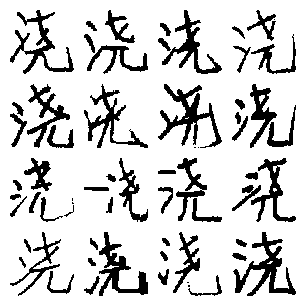 浇浇浇浇
浇浇浇浇
浇浇浇浇
浇浇浇浇